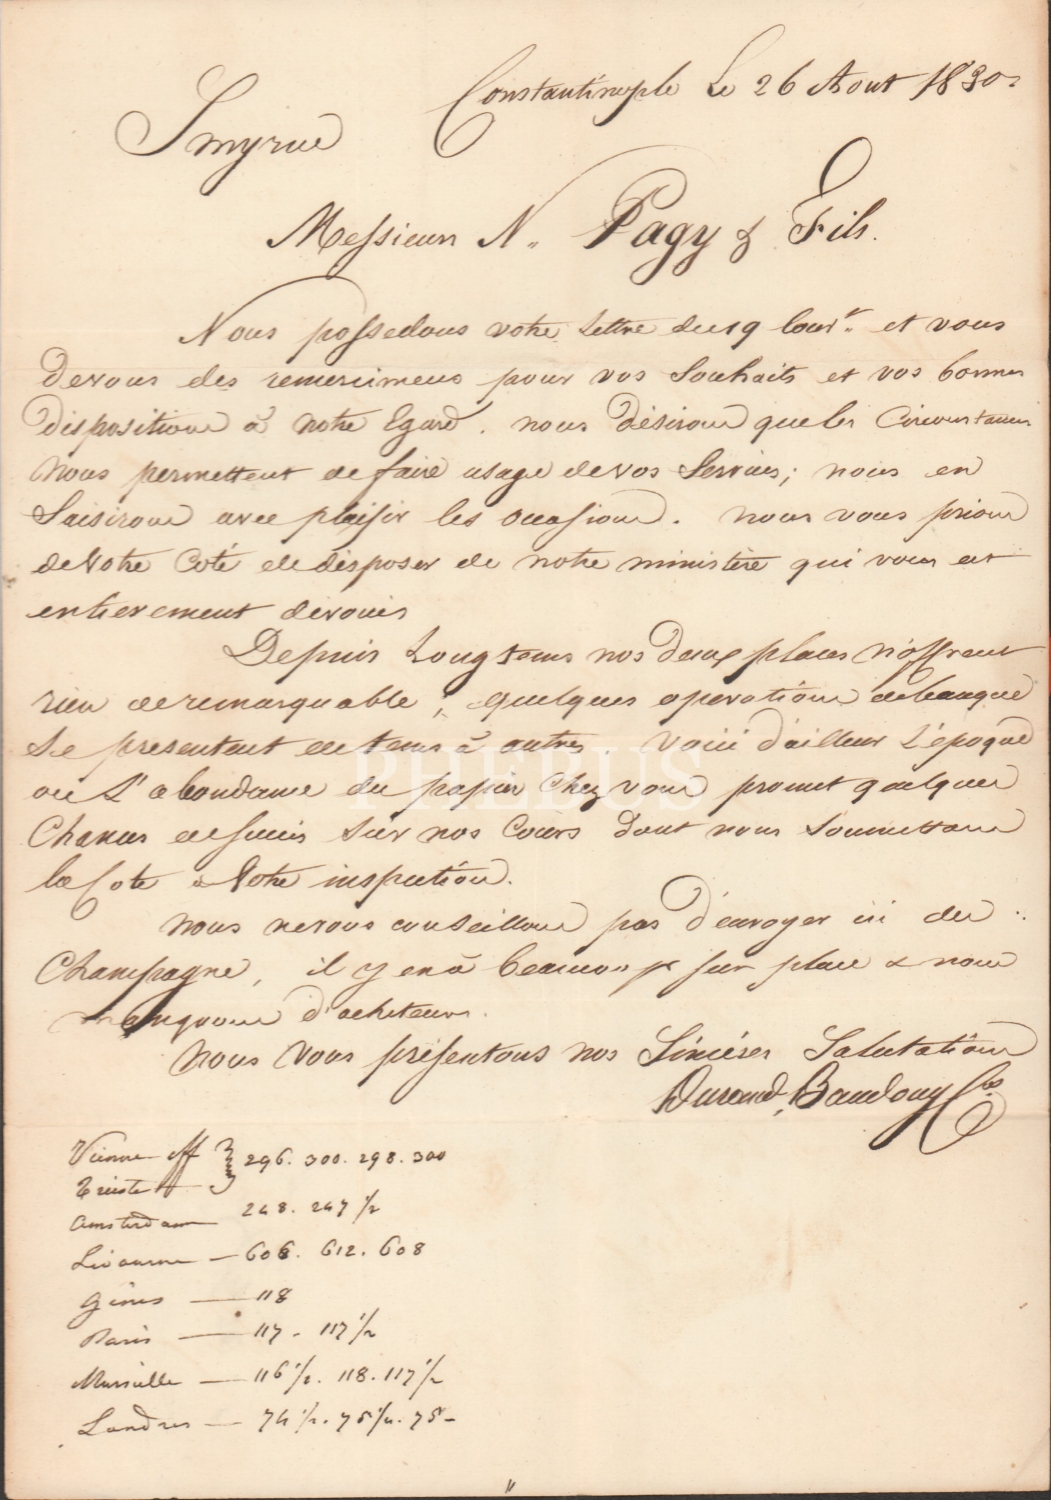 Constantinople Le 26 Aout 1830.
Smyrne
Messieurs N. Pagy & Fils.
Nous possedons votre Lettre du 19 Cour.t et vous
devons des remercimens pour vos Souhaits et vos bonnes
dispositions à notre Egard. nous désirons que les Circonstances
nous permettent de faire usage de vos Services; nous en
Saisirons avec plaisir les occasions. nous vous prions
de Votre Coté de disposer de notre ministère qui vous est
entierement devoués
Depuis Longtems nos deux places n'offrent
rien de remarquable, quelques operations de banque
Se presentent de tems à autres. Voici d'ailleur L'époque
où L'abondance du papier Chez vous promet quelques
Chances de sur nos Cours dont nous Soumettons
la Cote à Votre inspection.
nous ne vous conseillons pas d'envoyer ici du
Champagne, il y en à beaucoup sur place & nous
manquons d'acheteurs.
Nous Vous présentons nos Sincéres Salutations
Durand, Baudouy Co
Vienne eff } 296. 300. 298. 300
Trieste
Amsterdam 248. 247 1/2
Livourne — 606. 612. 608
Gènes — 118
Paris — 117. 117 1/2
Marseille — 116 1/2. 118. 117 1/2
Londres — 74 1/2. 75 1/4. 75 –
PHEBUS